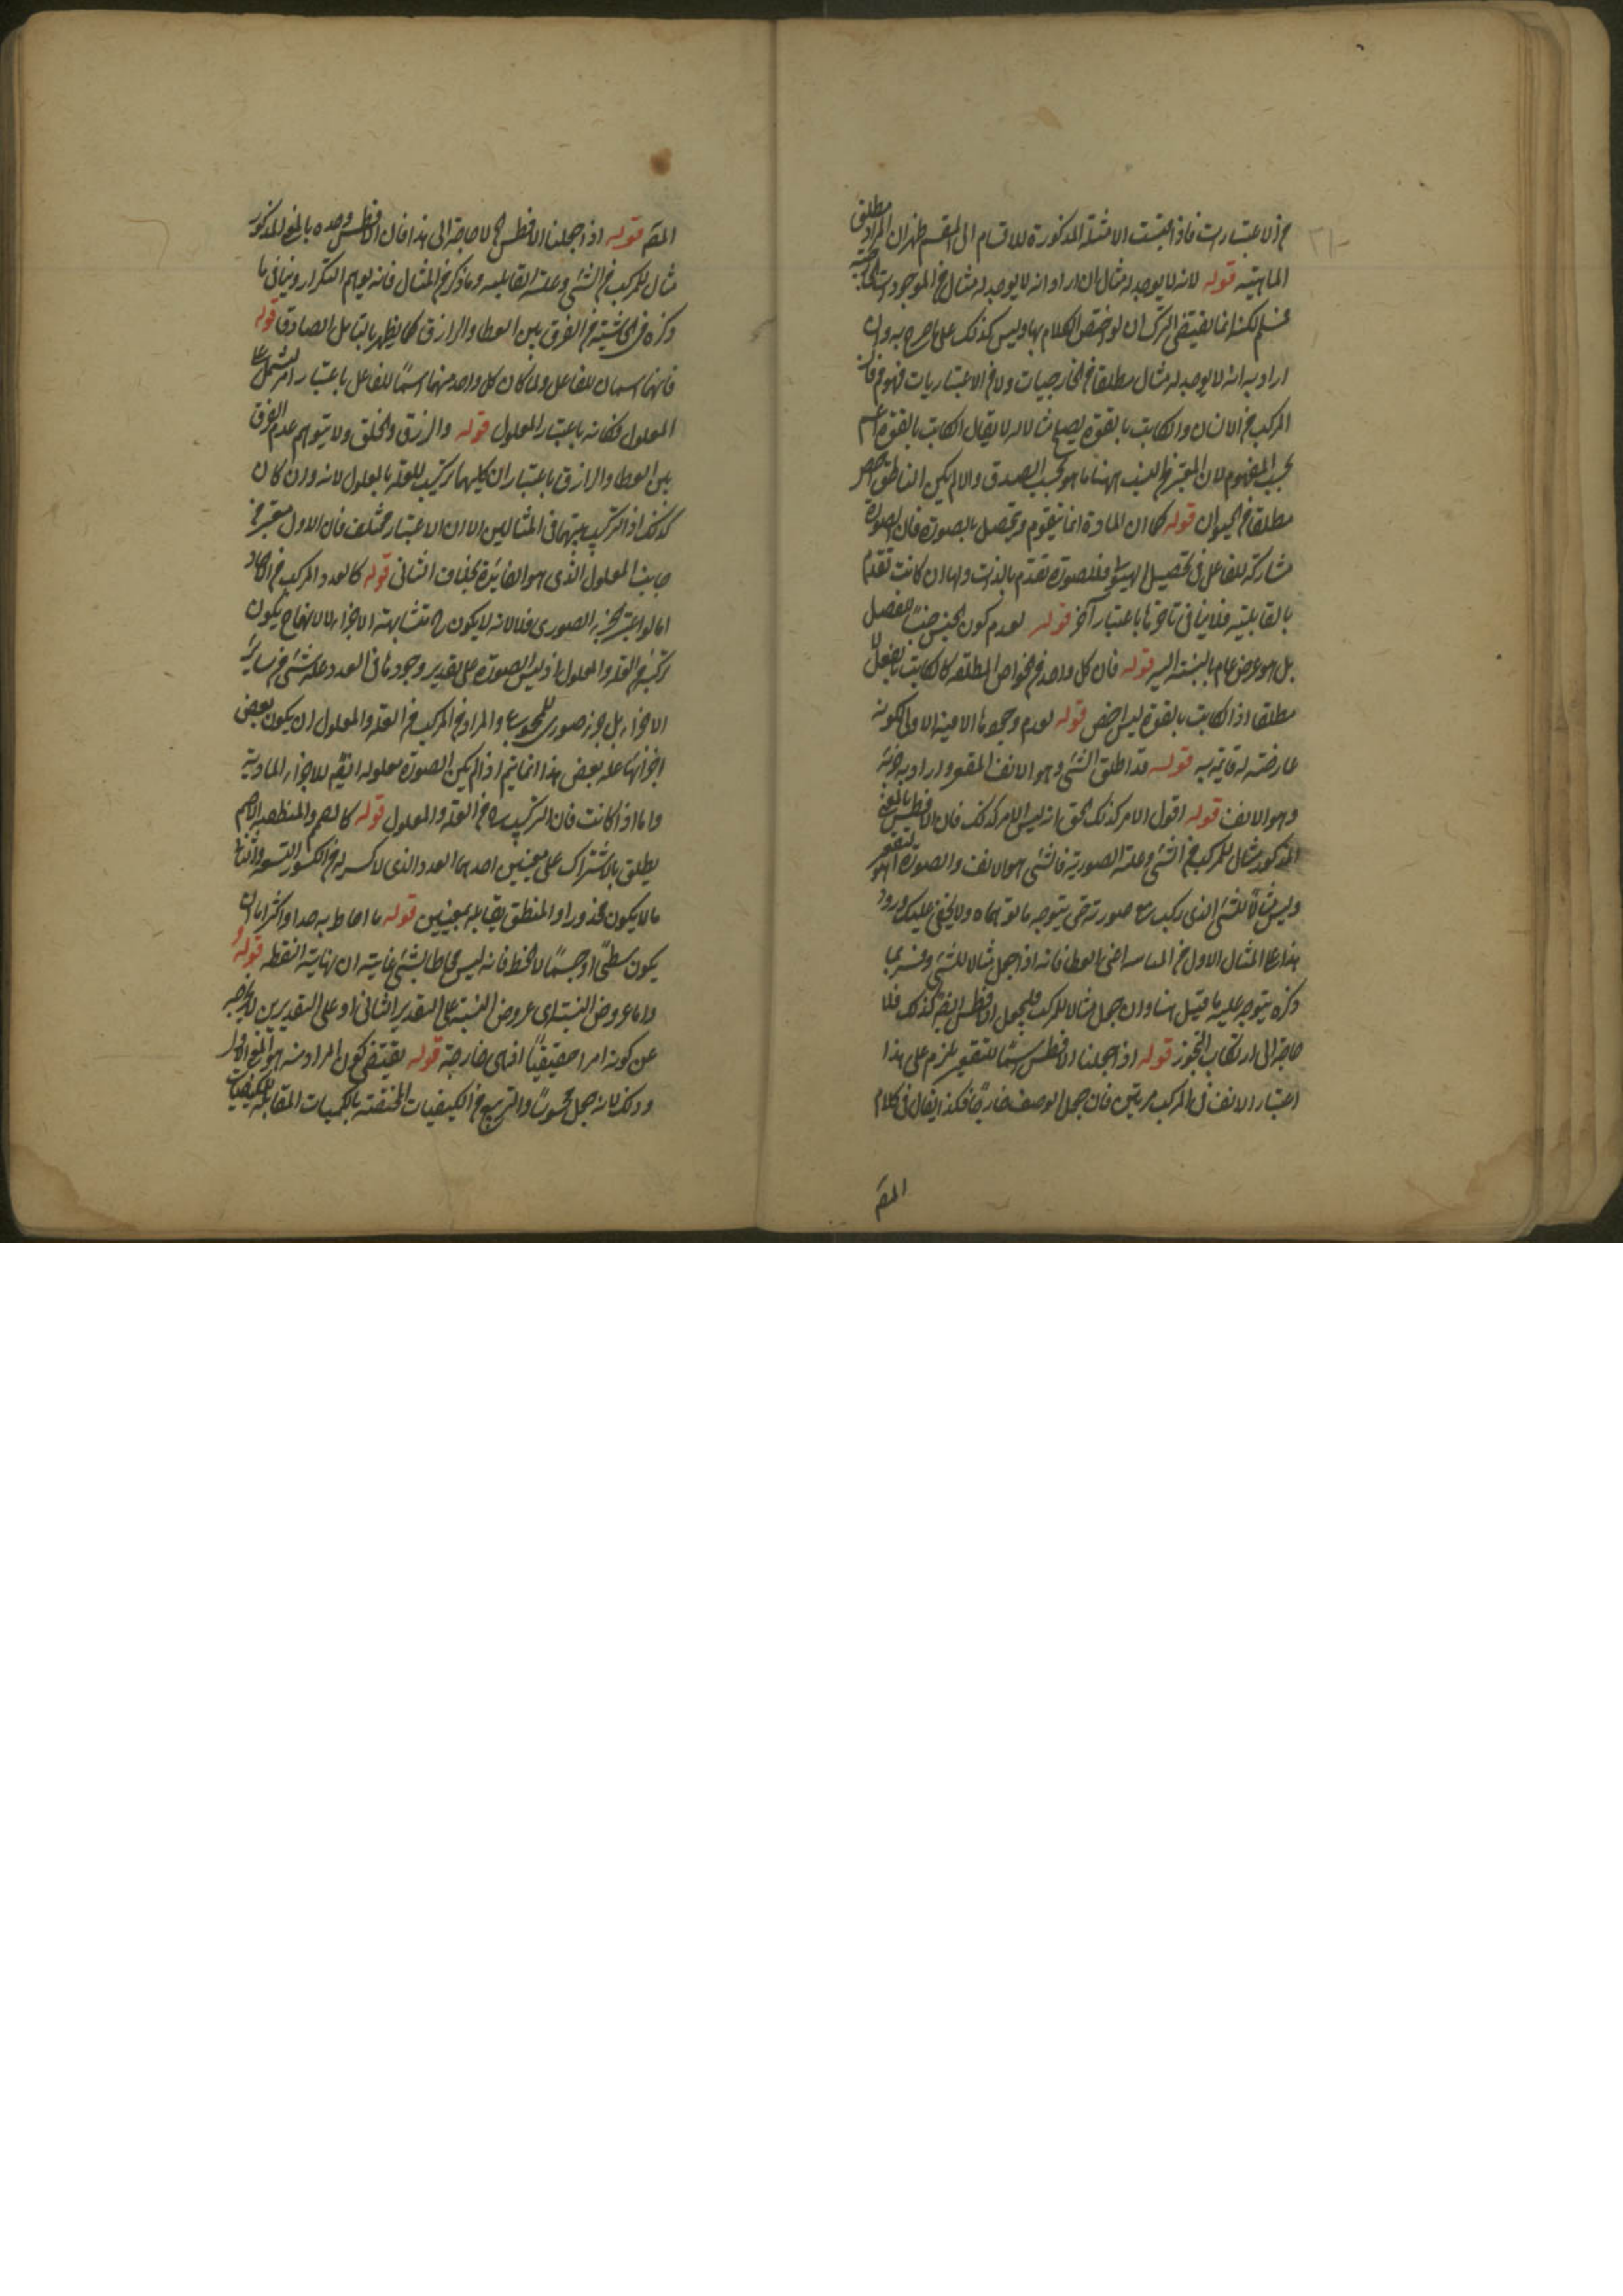 من الاعتبارات فاذا نسبت الامثلة المذكورة للاقسام الى المقسم ظهر ان المراد مطلق
الماهية قوله لانه لا يوجد له مثال ان اراد انه لا يوجد له مثال من الموجودات الخارجية
فمسلم لكنه انما يقتضى الترك ان لو اختص الكلام بها وليس كذلك على ما صرح به وان
اراد به انه لا يوجد له مثال مطلقا من الخارجيات ولا من الاعتباريات فهو فان
المركب من الانسان والكاتب بالقوة يصلح مثالا له لا يقال الكاتب بالقوة اعم
بحسب المفهوم لان المعتبر من النسب ههنا ما هو بحسب الصدق والا لم يكن الناطق اخص
مطلقا من الحيوان قوله كما ان المادة انما تتقوم وتحصل بالصورة فان الصورة
مشاركة للفاعل فى تحصيل الهيولى فللصورة تقدم بالذات ولها ان كانت تقدم
بالقابلية فلا ينافى تاخرها باعتبار آخر قوله لعدم كون الجنس جنسا للفصل
بل هو عرض عام بالنسبة اليه قوله فان كل واحد من الخواص المطلقة كالكاتب بالفعل
مطلقا اذ الكاتب بالقوة ليس اخص قوله لعدم وجود ما الامنية الاولى لكونه
عارضة له قايمة به قوله قد اطلق الشئ وهو الانف المقعر واراد به جزئه
وهو الانف قوله اقول الامر كذلك الحق انه ليس الامر كذلك فان الافطس بالمعنى
المذكور مثال للمركب من الشئ وعلته الصورية فالشئ هو الانف والصورة هو التقعر
وليس مثالا للشئ الذى ركب مع صورته حتى يتوجه ما توهماه ولا يخفى عليك ورود
هذا على المثال الاول من اعنى العطا فانه اذا جعل مثالا للشئ وفسر بما
ذكره يتوجه عليه ما قيل هنا وان جعل مثالا للمركب فليجعل الافطس ايضا كذلك فلا
حاجة الى ارتكاب التجوز قوله اذا جعلنا الافطس اسما للتقعير يلزم على هذا
اعتبار الانف فى المركب مرتين فان جعل الوصف خارجا فكذا يقال فى كلام
المصـ
المصـ قوله اذا جعلنا الافطس ح لا حاجة الى هذا فان الافطس وحده بالمعنى المذكور
مثال للمركب من الشئ وعلته القابلية وما ذكر من المثال فانه يوهم التكرار وينافى ما
ذكره فى الحاشية من الفرق بين العطا والرازق كما يظهر بالتامل الصادق قوله
فانهما اسمان للفاعل ولما كان كل واحد منهما اسما للفاعل باعتبار امر يشتمل على
المعلول فكانه باعتبار المعلول قوله والرزق والخلق ولا يتوهم عدم الفرق
بين العطا والرازق باعتبار ان كليهما تركيب للعلة بالمعلول لانه وان كان
كذلك اذ التركيب بينهما فى المثالين الا ان الاعتبار مختلف فان الاول معتبر من
جانب المعلول الذى هو الفائدة بخلاف الثانى قوله كالعدد المركب من الآحاد
اما لو اعتبر الجزء الصورى فلا لانه لا يكون ح متشابهة الاجزاء لا لانها ح يكون
تركبه من العلة والمعلول اذ ليس الصورة على تقدير وجودها فى العدد علة لشئ من سائر
الاجزاء بل جزء صورى للمجموع والمراد من المركب من العلة والمعلول ان يكون بعض
اجزائها علة لبعض هذا انما يتم اذا لم يكن الصورة معلولة ايضا للاجزاء المادية
واما اذا كانت فان التركيب من العلة والمعلول قوله كالاصم والمنطق الاصم
يطلق بالاشتراك على معنيين احدهما العدد الذى لا كسر له من الكسور التسعة وثانيهما
ما لا يكون مجذورا والمنطق يقابله بمعنيين قوله ما احاط به حد او اكثر اما ان
يكون سطحا او جسما لا الخط فانه ليس محاطا بشئ غايته ان نهايته النقطة قوله
واما عروض النسبة اى عروض النسبة على التقدير الثانى او على التقديرين لا يخرجه
عن كونه امرا حقيقيا اذ هى خارجة قوله يقتضى كون المراد منه هو المعنى الاول
وذلك لانه جعل محسوسا والتربيع من الكيفيات المختصة بالكميات المقابلة للكيفيات